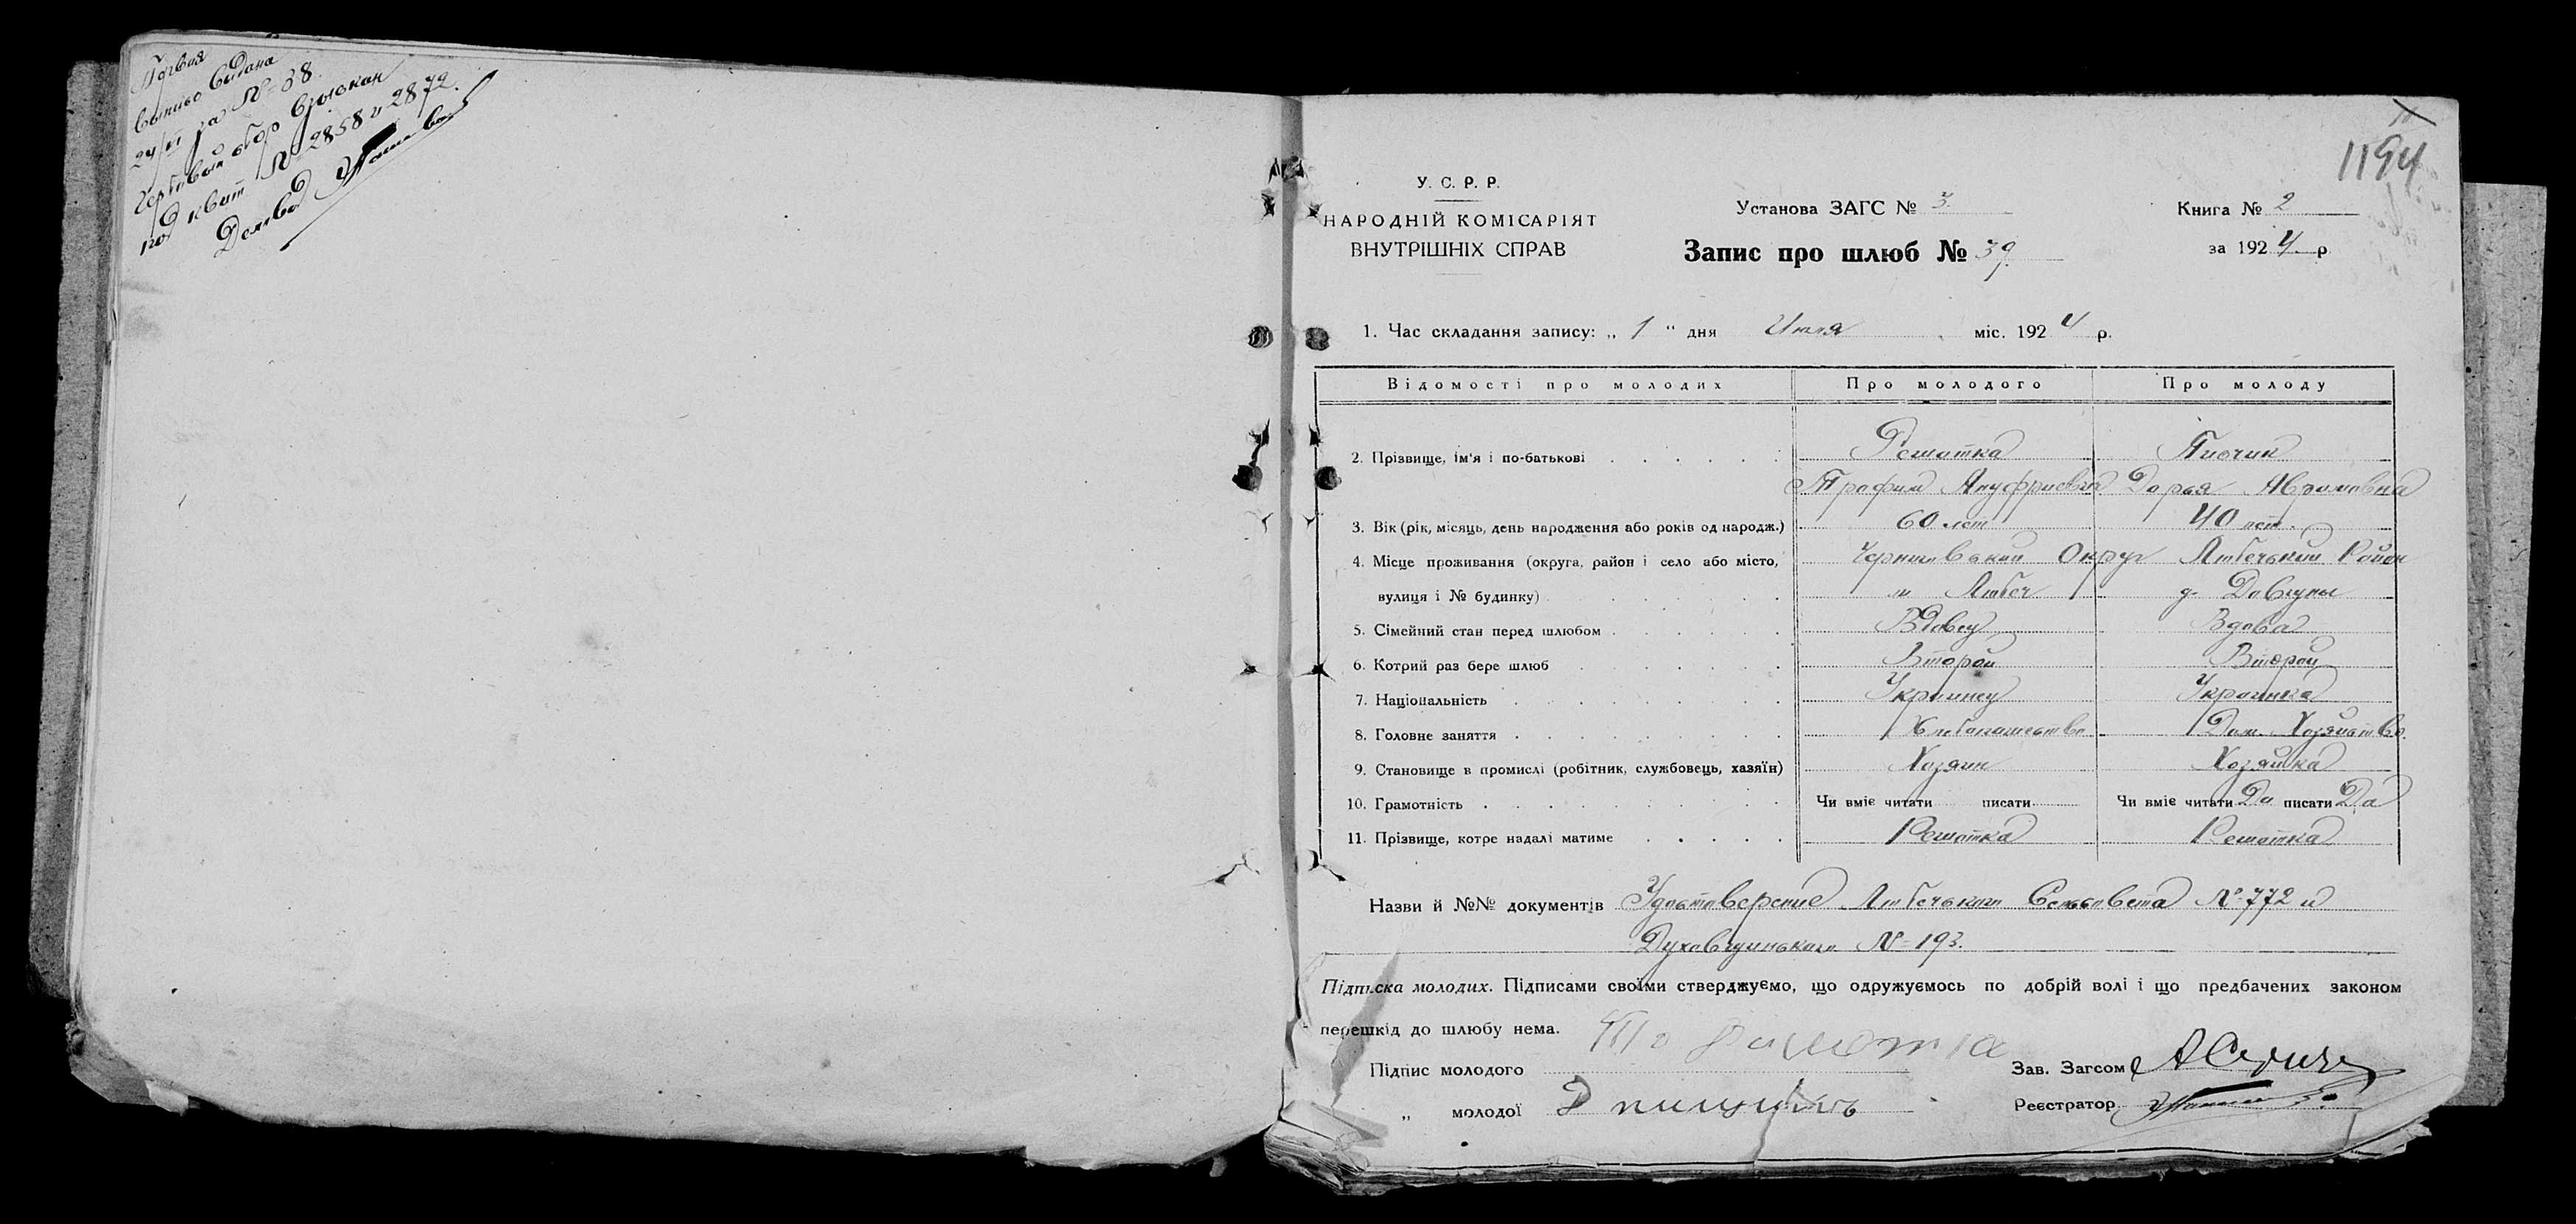 Первая
выпись выдана
24/VI за № 38
Гербовый сбор взыскан
под квит № 2858 и 2872.
Делов
1194
У. С. Р. Р.
НАРОДНІЙ КОМІСАРІЯТ
ВНУТРІШНІХ СПРАВ
Установа ЗАГС № 3
Запис про шлюб № 39
Книга № 2
за 1924 р
1. Час складання запису: „ 1 “ дня Июля міс. 1924 р.
Відомості про молодих Про молодого Про молоду
Решотка
2. Прізвище, ім'я і по-батькові
Трофим Ануфриевич Дарья Аврамовна
3. Вік (рік, місяць, день народження або років од народж.) 60 лет 40 лет.
4. Місце проживання (округа, район і село або місто, Черниговский Округ Любечьский Район
вулиця і № будинку) м Любеч д.
5. Сімейний стан перед шлюбом Вдовец Вдова
6. Котрий раз бере шлюб Второй Второй
7. Національність Украинец Украинка
8. Головне заняття Хлебопашество Дом. Хозяйство.
9. Становище в промислі (робітник, службовець, хазяїн) Хозяин Хозяйка
10. Грамотність Чи вміє читати писати Чи вміє читати Да писати Да
11. Прізвище, котре надалі матиме Решотка Решотка
Назви й №№ документів Удостоверение Любечьского Сельсовета № 772 и
Духовщиньского № 193.
Підписка молодих. Підписами своїми стверджуємо, що одружуємось по добрій волі і що предбачених законом
перешкід до шлюбу нема.
Підпис молодого
Зав. Загсом
„ молодої
Реєстратор